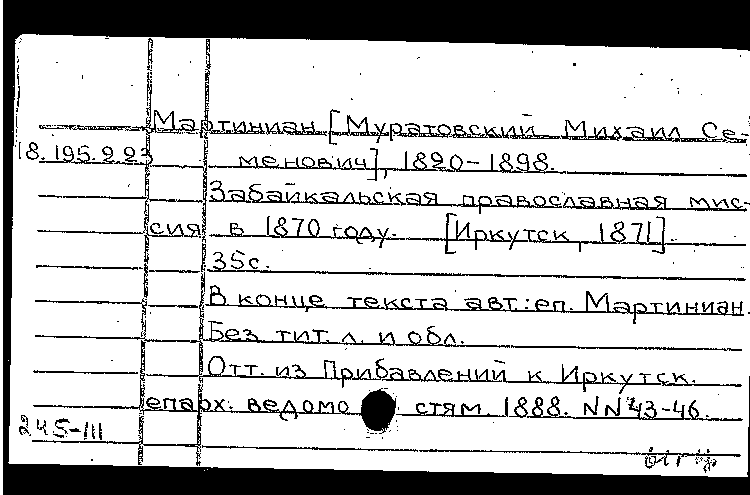 Мартиниан [Муратовский Михаил Се-
18.195.2 23 менович], 1820-1898.
Забайкальская православная мис-
сия в 1870 году. [Иркутск, 1871].
35с.
В конце текста авт.: еп. Мартиниан.
Без тит. л. и обл.
Отт. из Прибавлений к Иркутск.
епарх. ведомо стям. 1888. NN 43-46.
245-III